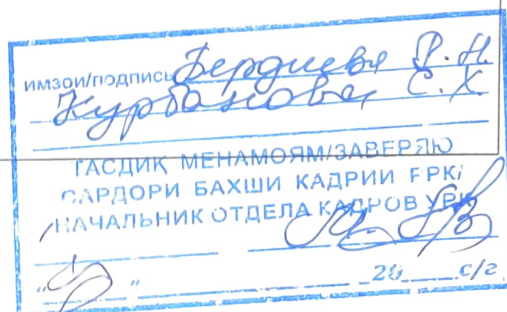 имзои/подпись Бердиева Р. Н.
Курбанова С. Х
ТАСДИҚ МЕНАМОЯМ/ЗАВЕРЯЮ
САРДОРИ БАХШИ КАДРИИ РРК/
НАЧАЛЬНИК ОТДЕЛА КАДРОВ УРК
" " 20 с/г